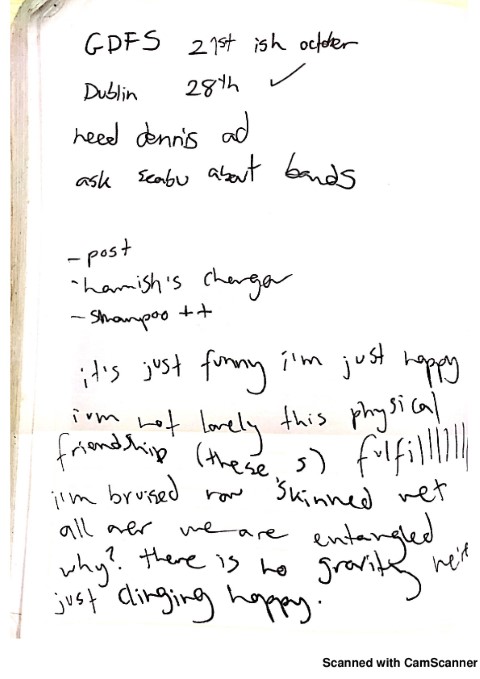 GDFS 21st ish october
Dublin 28th ✓
need dennis ad
ask about bands
- post
- hamish's charger
- shampoo ++
it's just funny i'm just happy
i'm not lonely this physical
friendship (these s) fulfillllllll
i'm bruised raw skinned wet
all over we are entangled
why? there is no gravity we're
just clinging happy.
Scanned with CamScanner